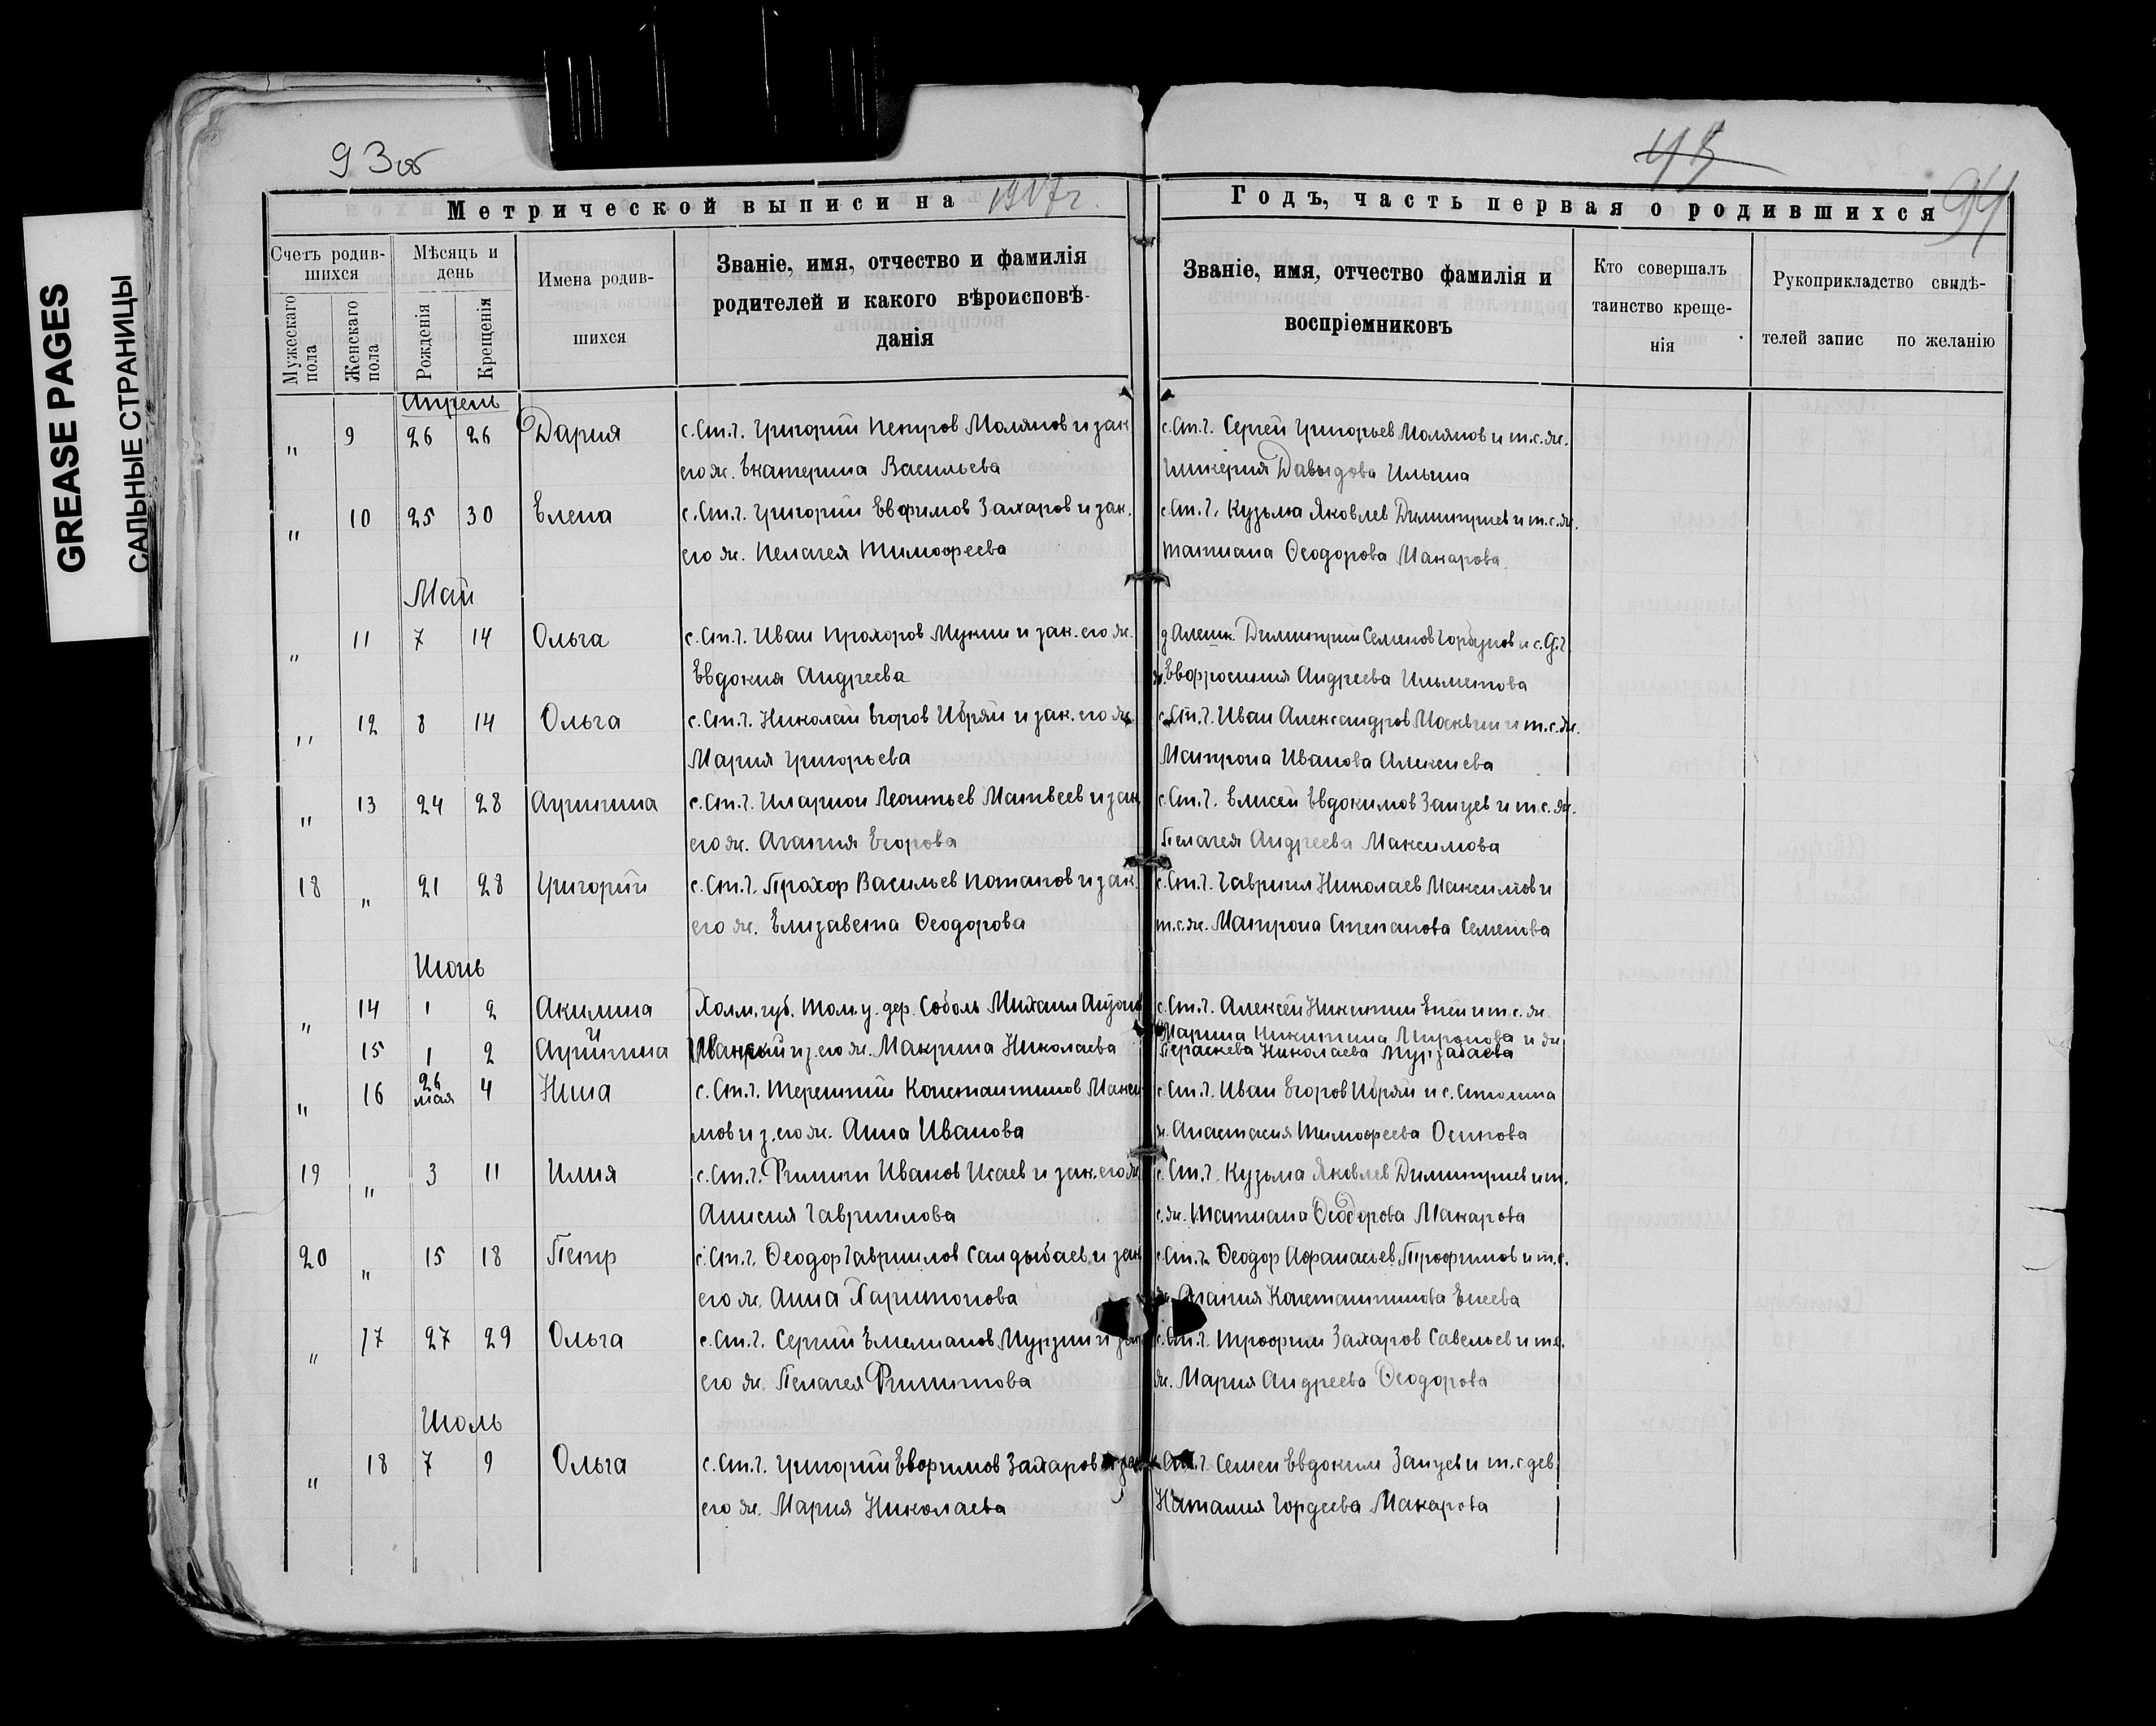 GREASE PAGES
САЛЬНЫЕ СТРАНИЦЫ
93об
94
Метрической выписи на 1917 г.
Годъ, часть первая о родившихся
Счетъ родившихся
Мужескаго пола
Женскаго пола
Мѣсяцъ и день
Рожденія
Крещенія
Имена родившихся
Званіе, имя, отчество и фамилія
родителей и какого вѣроисповѣ-
данія
Званіе, имя, отчество фамилія и
воспріемниковъ
Кто совершалъ
таинство креще-
нія
Рукоприкладство свидѣ-
телей запис по желанію
Апрель
" 9 26 26 Дария с. Ст.Ч. Григорий Петров Молянов и зак. с. Ст.Ч. Сергей Григорьев Молянов и т.с. ж.
его ж. Екатерина Васильева Гликерия Давыдова Ильина
" 10 25 30 Елена с. Ст.Ч. Григорий Евфимов Захаров и зак. с. Ст.Ч. Кузьма Яковлев Димитриев и т.с. ж.
его ж. Пелагея Тимофеева Татиана Феодорова Макарова
Май
" 11 7 14 Ольга с. Ст.Ч. Иван Прохоров Мукин и зак. его ж. Димитрий Семенов Горбунов и с.
Евдокия Андреева Евфросиния Андреева Ильметова
" 12 8 14 Ольга с. Ст.Ч. Николай Егоров Ибряй и зак. его ж. с. Ст.Ч. Иван Александров Москвин и т.с. ж.
Мария Григорьева Матрона Иванова Алексиева
" 13 24 28 Агрипина с. Ст.Ч. Иларион Леонтьев Матвеев и зак. с. Ст.Ч. Елисей Евдокимов Зайцев и т.с. ж.
его ж. Агапия Егорова Пелагея Андреева Максимова
18 " 21 28 Григорий с. Ст.Ч. Прохор Васильев Потапов и зак. с. Ст.Ч. Гавриил Николаев Максимов и
его ж. Елизавета Феодорова т.с. ж. Матрона Степанова Семенова
Июнь
" 14 1 2 Акилина Холм. губ. Том. у. дер. Соболь Михаил с. Ст.Ч. Алексей Никитин Енеи и т.с. ж.
Марина Никитина Миронова и ж.
15 1 2 Агрипина и з. его ж. Макрина Николаева Параскева Николаева
" 16 26 мая 4 Нина с. Ст.Ч. Терентий Константинов Макси- с. Ст.Ч. Иван Егоров Ибряй и с.
мов и з. его ж. Анна Иванова ж. Анастасия Тимофеева Осипова
19 " 3 11 Илия с. Ст.Ч. Филипп Иванов Исаев и зак. его ж. с. Ст.Ч. Кузьма Яковлев Димитриев и т.
Анисия Гавриилова с. ж. Татиана Феодорова Макарова
20 " 15 18 Петр с. Ст.Ч. Феодор Гавриилов Салдыбаев и зак. с. Ст.Ч. Феодор Афанасьев Трофимов и т.с.
его ж. Анна Харитонова ж. Агапия Константинова Енеева
" 17 27 29 Ольга с. Ст.Ч. Сергий Емелианов Мурзин и зак. с. Ст.Ч. Трофим Захаров Савельев и т.с.
его ж. Пелагея Филиппова ж. Мария Андреева Феодорова
Июль
" 18 7 9 Ольга с. Ст.Ч. Григорий Евфимов Захаров и зак. с. Ст.Ч. Семен Евдоким Зайцев и т.с. дев.
его ж. Мария Николаева Наталия Гордеева Макарова